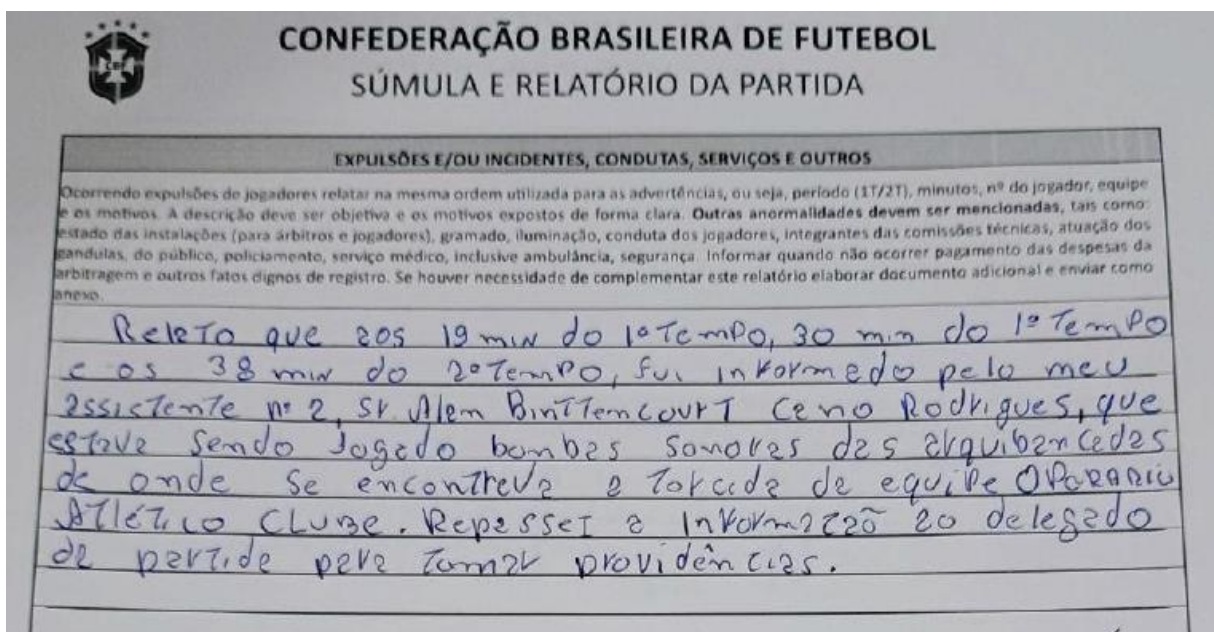 CBF
CONFEDERAÇÃO BRASILEIRA DE FUTEBOL
SÚMULA E RELATÓRIO DA PARTIDA
EXPULSÕES E/OU INCIDENTES, CONDUTAS, SERVIÇOS E OUTROS
Ocorrendo expulsões de jogadores relatar na mesma ordem utilizada para as advertências, ou seja, período (1T/2T), minutos, nº do jogador, equipe
e os motivos. A descrição deve ser objetiva e os motivos expostos de forma clara. Outras anormalidades devem ser mencionadas, tais como:
estado das instalações (para árbitros e jogadores), gramado, iluminação, conduta dos jogadores, integrantes das comissões técnicas, atuação dos
gandulas, do público, policiamento, serviço médico, inclusive ambulância, segurança. Informar quando não ocorrer pagamento das despesas da
arbitragem e outros fatos dignos de registro. Se houver necessidade de complementar este relatório elaborar documento adicional e enviar como
anexo.
Relato que aos 19 min do 1º Tempo, 30 min do 1º Tempo
e os 38 min do 2º Tempo, fui informado pelo meu
assistente nº 2, Sr Alem Binttencourt Cano Rodrigues, que
estava sendo Jogado bombas sonoras das arquibancadas
de onde se encontrava a torcida da equipe OPARARIO
ATLÉTICO CLUBE. Repassei a informação ao delegado
da partida para tomar providências.